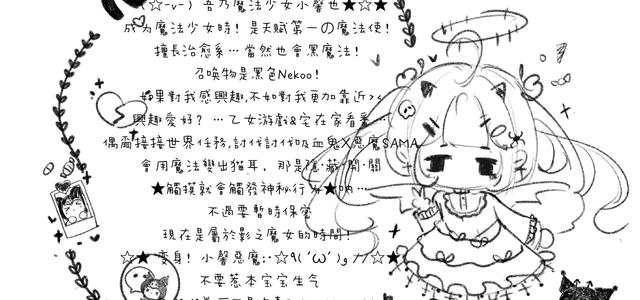 (☆-v-) 吾乃魔法少女小馨也★☆★
成为魔法少女時! 是天賦第一の魔法使!
擅長治愈系…當然也會黑魔法!
召喚物是黑色Nekoo!
如果對我感興趣,不如對我更加靠近><
興趣愛好? …乙女游戲&宅在家看番…
偶爾接接世界任務,討伐討伐吸血鬼X惡魔SAMA
會用魔法變出猫耳, 那是隱·藏·開·關
★觸摸就會觸發神秘行为★呐…
不過要暫時保密
現在是屬於影之魔女的時間!
☆★变身! 小馨惡魔:·☆٩( 'ω' )و //☆★
不要惹本宝宝生气